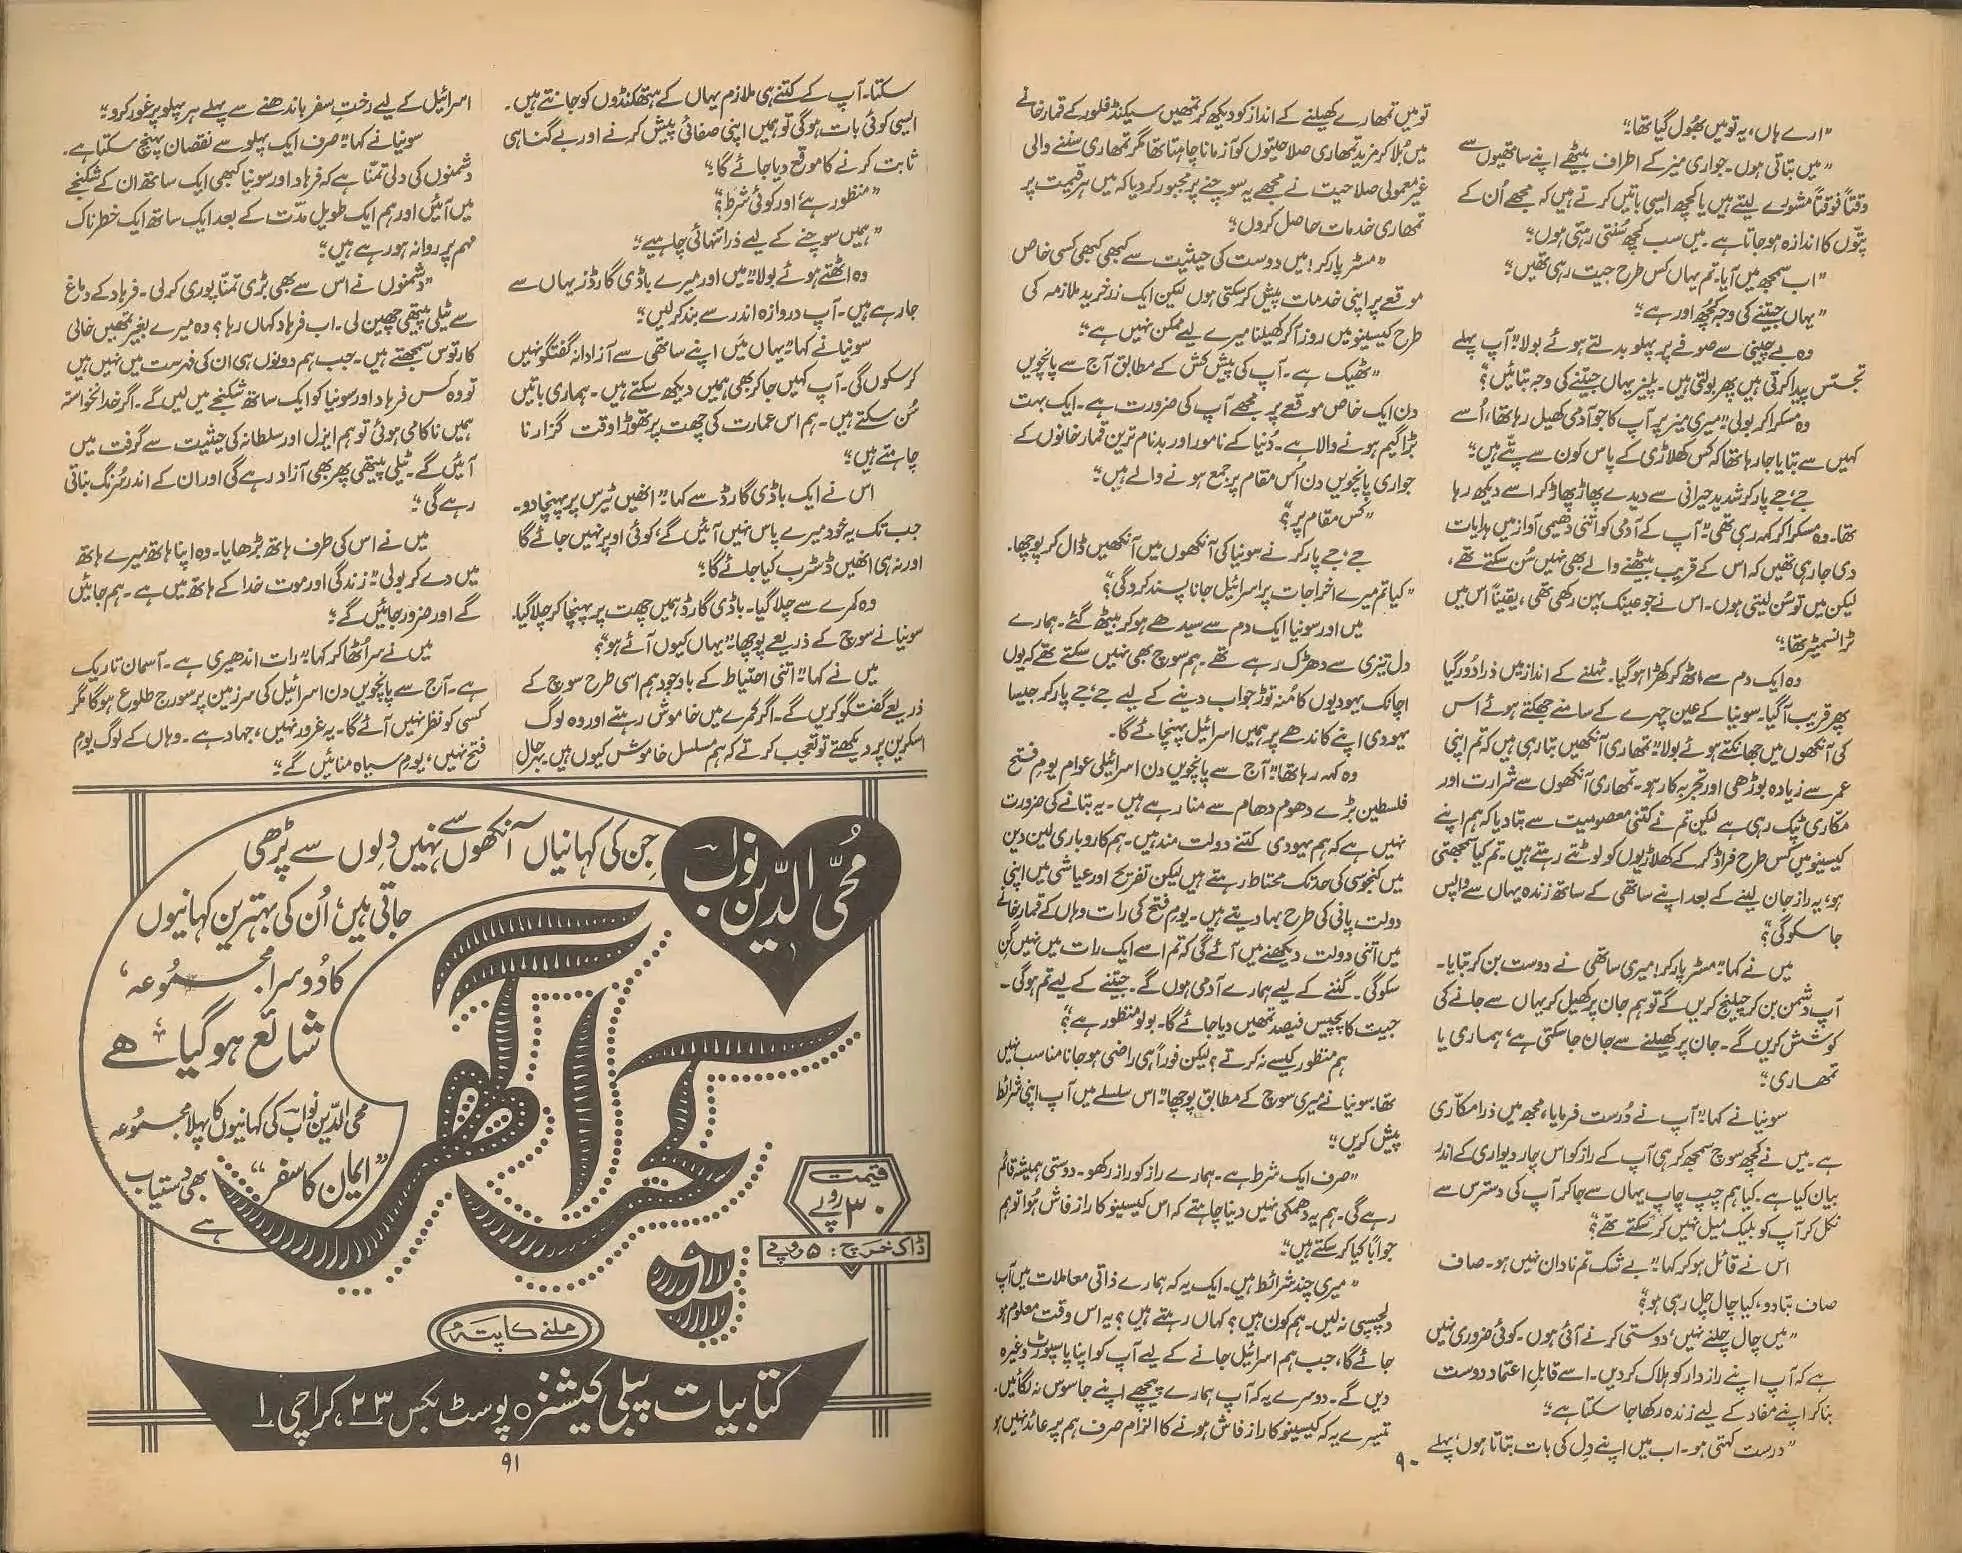 ”ارے ہاں، یہ تو میں بھول گیا تھا۔“
”میں بتاتی ہوں۔ جواری میز کے اطراف بیٹھے اپنے ساتھیوں سے
وقتاً فوقتاً مشورے لیتے ہیں یا کچھ ایسی باتیں کرتے ہیں کہ مجھے اُن کے
پتوں کا اندازہ ہو جاتا ہے۔ میں سب کچھ سُنتی رہتی ہوں۔“
”اب سمجھ میں آیا۔ تم یہاں کس طرح جیت رہی تھیں۔“
”یہاں جیتنے کی وجہ کچھ اور ہے۔“
وہ بے چینی سے صوفے پر پہلو بدلتے ہوئے بولا۔ ”آپ پہلے
تجسّس پیدا کرتی ہیں پھر بولتی ہیں۔ پلیز یہاں جیتنے کی وجہ بتائیں؟“
وہ مسکرا کر بولی۔ ”میری میز پر آپ کا جو آدمی کھیل رہا تھا، اُسے
کہیں سے بتایا جا رہا تھا کہ کس کھلاڑی کے پاس کون سے پتّے ہیں۔“
جے جے پارکر شدید حیرانی سے دیدے پھاڑ پھاڑ کر اسے دیکھ رہا
تھا۔ وہ مسکرا کر کہہ رہی تھی۔ ”آپ کے آدمی کو اتنی دھیمی آواز میں ہدایات
دی جا رہی تھیں کہ اس کے قریب بیٹھنے والے بھی نہیں سُن سکتے تھے،
لیکن میں تو سُن لیتی ہوں۔ اس نے جو عینک پہن رکھی تھی، یقیناً اس میں
ٹرانسمیٹر تھا۔“
وہ ایک دم سے اٹھ کر کھڑا ہو گیا۔ ٹہلنے کے انداز میں ذرا دُور گیا
پھر قریب آ گیا۔ سونیا کے عین چہرے کے سامنے جھکتے ہوئے اس
کی آنکھوں میں جھانکتے ہوئے بولا۔ ”تمھاری آنکھیں بتا رہی ہیں کہ تم اپنی
عمر سے زیادہ بوڑھی اور تجربہ کار ہو۔ تمھاری آنکھوں سے شرارت اور
مکّاری ٹپک رہی ہے لیکن تم نے کتنی معصومیت سے بتا دیا کہ ہم اپنے
کیسینو میں کس طرح فراڈ کر کے کھلاڑیوں کو لوٹتے رہتے ہیں۔ تم کیا سمجھتی
ہو، یہ راز جان لینے کے بعد اپنے ساتھی کے ساتھ زندہ یہاں سے واپس
جا سکو گی؟“
میں نے کہا۔ ”مسٹر پارکر! میری ساتھی نے دوست بن کر بتایا۔
آپ دشمن بن کر چیلنج کریں گے تو ہم جان پر کھیل کر یہاں سے جانے کی
کوشش کریں گے۔ جان پر کھیلنے سے جان جا سکتی ہے، ہماری یا
تمھاری۔“
سونیا نے کہا۔ ”آپ نے دُرست فرمایا، مجھ میں ذرا مکّاری
ہے۔ میں نے کچھ سوچ سمجھ کر ہی آپ کے راز کو اس چار دیواری کے اندر
بیان کیا ہے۔ کیا ہم چپ چاپ یہاں سے جا کر آپ کی دسترس سے
نکل کر آپ کو بلیک میل نہیں کر سکتے تھے؟“
اس نے قائل ہو کر کہا۔ ”بے شک تم نادان نہیں ہو۔ صاف
صاف بتا دو، کیا چال چل رہی ہو؟“
”میں چال چلنے نہیں، دوستی کرنے آئی ہوں۔ کوئی ضروری نہیں
ہے کہ آپ اپنے راز دار کو ہلاک کر دیں۔ اسے قابلِ اعتماد دوست
بنا کر اپنے مفاد کے لیے زندہ رکھا جا سکتا ہے۔“
”درست کہتی ہو۔ اب میں اپنے دل کی بات بتاتا ہوں، پہلے
تو میں تمھارے کھیلنے کے انداز کو دیکھ کر تمھیں سیکنڈ فلور کے قمار خانے
میں بُلا کر مزید تمھاری صلاحیتوں کو آزمانا چاہتا تھا مگر تمھاری سننے والی
غیر معمولی صلاحیت نے مجھے یہ سوچنے پر مجبور کر دیا کہ میں ہر قیمت پر
تمھاری خدمات حاصل کروں۔“
”مسٹر پارکر! میں دوست کی حیثیت سے کبھی کبھی کسی خاص
موقعے پر اپنی خدمات پیش کر سکتی ہوں لیکن ایک زر خرید ملازمہ کی
طرح کیسینو میں روز آ کر کھیلنا میرے لیے ممکن نہیں ہے۔“
”ٹھیک ہے۔ آپ کی پیش کش کے مطابق آج سے پانچویں
دن ایک خاص موقعے پر مجھے آپ کی ضرورت ہے۔ ایک بہت
بڑا گیم ہونے والا ہے۔ دُنیا کے نامور اور بدنام ترین قمار خانوں کے
جواری پانچویں دن اُس مقام پر جمع ہونے والے ہیں۔“
”کس مقام پر؟“
جے جے پارکر نے سونیا کی آنکھوں میں آنکھیں ڈال کر پوچھا۔
”کیا تم میرے اخراجات پر اسرائیل جانا پسند کرو گی؟“
میں اور سونیا ایک دم سے سیدھے ہو کر بیٹھ گئے۔ ہمارے
دل تیزی سے دھڑک رہے تھے۔ ہم سوچ بھی نہیں سکتے تھے کہ یوں
اچانک یہودیوں کا مُنہ توڑ جواب دینے کے لیے جے جے پارکر جیسا
یہودی اپنے کاندھے پر ہمیں اسرائیل پہنچائے گا۔
وہ کہہ رہا تھا۔ ”آج سے پانچویں دن اسرائیلی عوام یومِ فتح
فلسطین بڑے دھوم دھام سے منا رہے ہیں۔ یہ بتانے کی ضرورت
نہیں ہے کہ ہم یہودی کتنے دولت مند ہیں۔ ہم کاروباری لین دین
میں کنجوسی کی حد تک محتاط رہتے ہیں لیکن تفریح اور عیاشی میں اپنی
دولت پانی کی طرح بہا دیتے ہیں۔ یومِ فتح کی رات وہاں کے قمار خانے
میں اتنی دولت دیکھنے میں آئے گی کہ تم اسے ایک رات میں نہیں گن
سکو گی۔ گننے کے لیے ہمارے آدمی ہوں گے۔ جیتنے کے لیے تم ہو گی۔
جیت کا پچیس فیصد تمھیں دیا جائے گا۔ بولو منظور ہے؟“
ہم منظور کیسے نہ کرتے؟ لیکن فوراً ہی راضی ہو جانا مناسب نہیں
تھا۔ سونیا نے میری سوچ کے مطابق پوچھا۔ ”اس سلسلے میں آپ اپنی شرائط
پیش کریں۔“
”صرف ایک شرط ہے۔ ہمارے راز کو راز رکھو۔ دوستی ہمیشہ قائم
رہے گی۔ ہم یہ دھمکی نہیں دینا چاہتے کہ اس کیسینو کا راز فاش ہُوا تو ہم
جواباً کیا کر سکتے ہیں۔“
”میری چند شرائط ہیں۔ ایک یہ کہ ہمارے ذاتی معاملات میں آپ
دلچسپی نہ لیں۔ ہم کون ہیں؟ کہاں رہتے ہیں؟ یہ اس وقت معلوم ہو
جائے گا، جب ہم اسرائیل جانے کے لیے آپ کو اپنا پاسپورٹ وغیرہ
دیں گے۔ دوسرے یہ کہ آپ ہمارے پیچھے اپنے جاسوس نہ لگائیں۔
تیسرے یہ کہ کیسینو کا راز فاش ہونے کا الزام صرف ہم پر عائد نہیں ہو
۹۰
سکتا۔ آپ کے کتنے ہی ملازم یہاں کے ہتھکنڈوں کو جانتے ہیں۔
ایسی کوئی بات ہو گی تو ہمیں اپنی صفائی پیش کرنے اور بے گناہی
ثابت کرنے کا موقع دیا جائے گا۔“
”منظور ہے، اور کوئی شرط؟“
”ہمیں سوچنے کے لیے ذرا تنہائی چاہیے۔“
وہ اٹھتے ہوئے بولا۔ ”میں اور میرے باڈی گارڈز یہاں سے
جا رہے ہیں۔ آپ دروازہ اندر سے بند کر لیں۔“
سونیا نے کہا۔ ”یہاں میں اپنے ساتھی سے آزادانہ گفتگو نہیں
کر سکوں گی۔ آپ کہیں جا کر بھی ہمیں دیکھ سکتے ہیں۔ ہماری باتیں
سُن سکتے ہیں۔ ہم اس عمارت کی چھت پر تھوڑا وقت گزارنا
چاہتے ہیں۔“
اس نے ایک باڈی گارڈ سے کہا۔ ”انھیں ٹیرس پر پہنچا دو۔
جب تک یہ خود میرے پاس نہیں آئیں گے، کوئی اوپر نہیں جائے گا
اور نہ ہی انھیں ڈسٹرب کیا جائے گا۔“
وہ کمرے سے چلا گیا۔ باڈی گارڈ ہمیں چھت پر پہنچا کر چلا گیا۔
سونیا نے سوچ کے ذریعے پوچھا۔ ”یہاں کیوں آئے ہو؟“
میں نے کہا۔ ”اتنی احتیاط کے باوجود ہم اسی طرح سوچ کے
ذریعے گفتگو کریں گے۔ اگر کمرے میں خاموش رہتے اور وہ لوگ
اسکرین پر دیکھتے تو تعجب کرتے کہ ہم مسلسل خاموش کیوں ہیں۔ بہرحال
اسرائیل کے لیے رختِ سفر باندھنے سے پہلے ہر پہلو پر غور کرو۔“
سونیا نے کہا۔ ”صرف ایک پہلو سے نقصان پہنچ سکتا ہے۔
دشمنوں کی دلی تمنّا ہے کہ فرہاد اور سونیا کبھی ایک ساتھ ان کے شکنجے
میں آئیں اور ہم ایک طویل مدّت کے بعد ایک ساتھ ایک خطرناک
مہم پر روانہ ہو رہے ہیں۔“
”دشمنوں نے اس سے بھی بڑی تمنّا پوری کر لی۔ فرہاد کے دماغ
سے ٹیلی پیتھی چھین لی۔ اب فرہاد کہاں رہا؟ وہ میرے بغیر تمھیں خالی
کارتوس سمجھتے ہیں۔ جب ہم دونوں ہی ان کی فہرست میں نہیں ہیں
تو وہ کس فرہاد اور سونیا کو ایک ساتھ شکنجے میں لیں گے۔ اگر خدانخواستہ
ہمیں ناکامی ہوئی تو ہم ایزل اور سلطانہ کی حیثیت سے گرفت میں
آئیں گے۔ ٹیلی پیتھی پھر بھی آزاد رہے گی اور ان کے اندر سُرنگ بناتی
رہے گی۔“
میں نے اس کی طرف ہاتھ بڑھایا۔ وہ اپنا ہاتھ میرے ہاتھ
میں دے کر بولی۔ ”زندگی اور موت خدا کے ہاتھ میں ہے۔ ہم جائیں
گے اور ضرور جائیں گے۔“
میں نے سر اُٹھا کر کہا۔ ”رات اندھیری ہے۔ آسمان تاریک
ہے۔ آج سے پانچویں دن اسرائیل کی سرزمین پر سورج طلوع ہو گا مگر
کسی کو نظر نہیں آئے گا۔ یہ غرور نہیں، جہاد ہے۔ وہاں کے لوگ یومِ
فتح نہیں، یومِ سیاہ منائیں گے۔“
محی الدّین نواب
جن کی کہانیاں آنکھوں سے نہیں دلوں سے پڑھی
جاتی ہیں، اُن کی بہترین کہانیوں
کا دُوسرا مجموعہ،
شائع ہو گیا ہے
محی الدّین نواب کی کہانیوں کا پہلا مجموعہ
”ایمان کا سفر“ بھی دستیاب
ہے
قیمت
۳۰ روپے
ڈاک خرچ: ۵ روپے
ملنے کا پتہ
کتابیات پبلی کیشنز ○ پوسٹ بکس ۲۳، کراچی ۱
۹۱